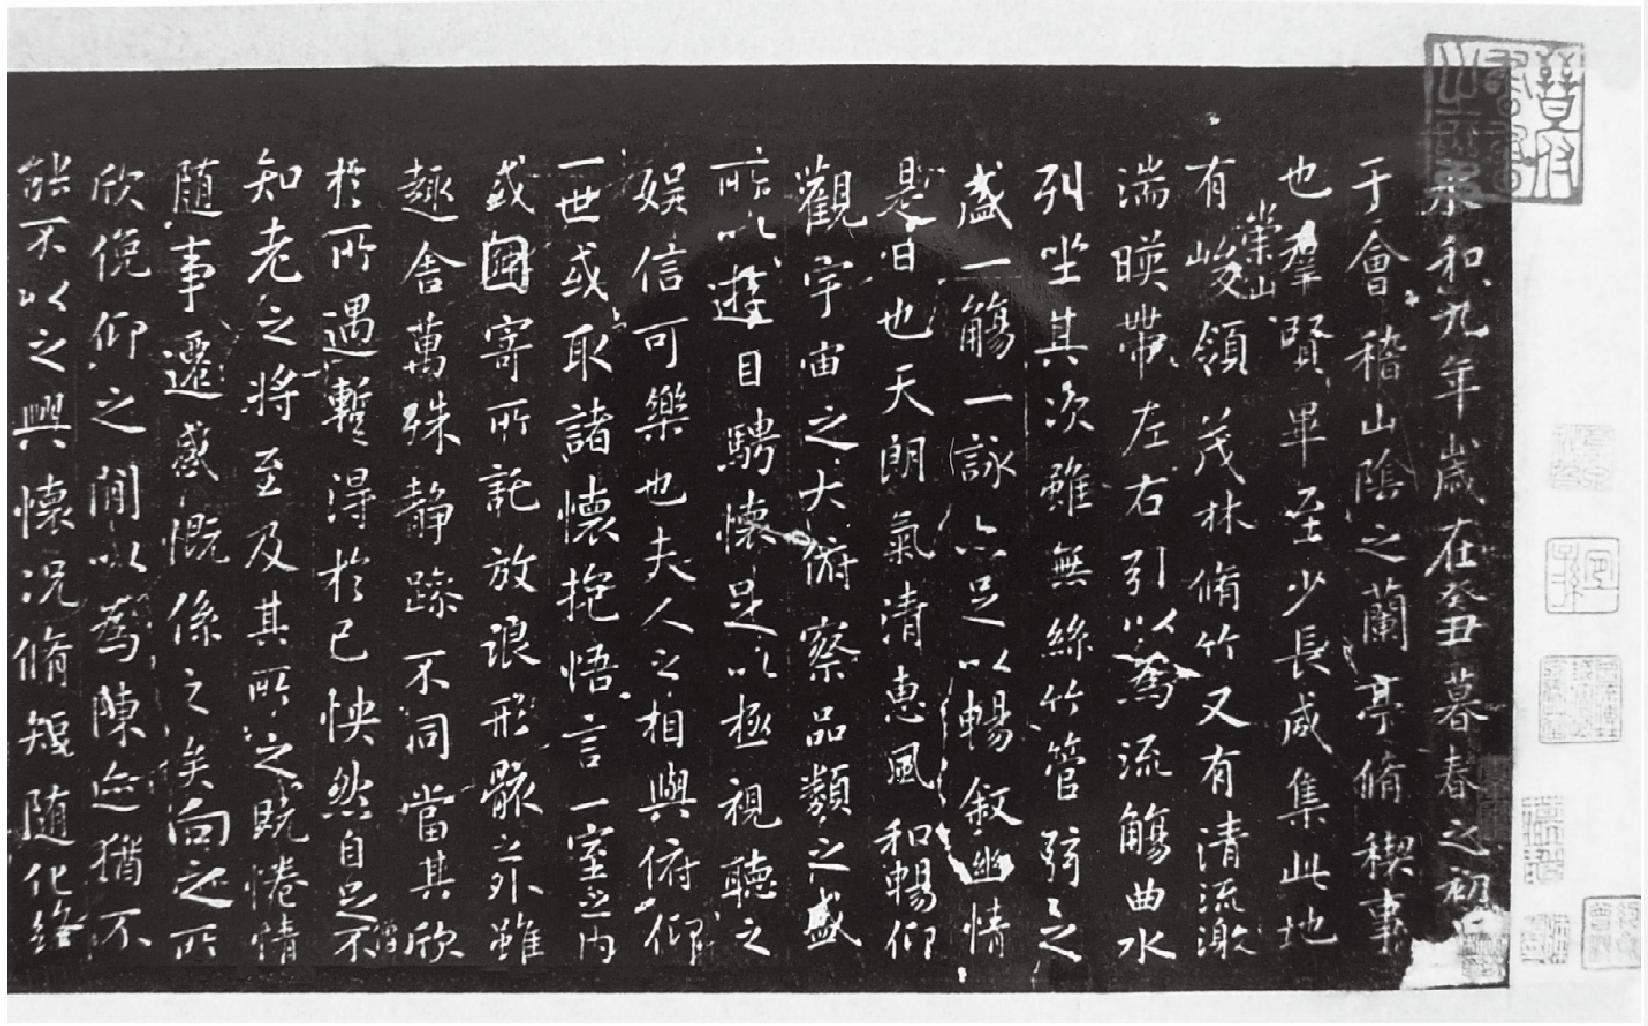 永和九年歲在癸丑暮春之初會
于會稽山陰之蘭亭脩稧事
也羣賢畢至少長咸集此地
有崇山峻領茂林脩竹又有清流激
湍暎帶左右引以為流觴曲水
列坐其次雖無絲竹管弦之
盛一觴一詠亦足以暢叙幽情
是日也天朗氣清惠風和暢仰
觀宇宙之大俯察品類之盛
所以遊目騁懷足以極視聽之
娛信可樂也夫人之相與俯仰
一世或取諸懷抱悟言一室之內
或因寄所託放浪形骸之外雖
趣舍萬殊静躁不同當其欣
於所遇蹔得於己怏然自足不
知老之將至及其所之既惓情
隨事遷感慨係之矣向之所
欣俛仰之閒以為陳迹猶不
能不以之興懷况脩短隨化終